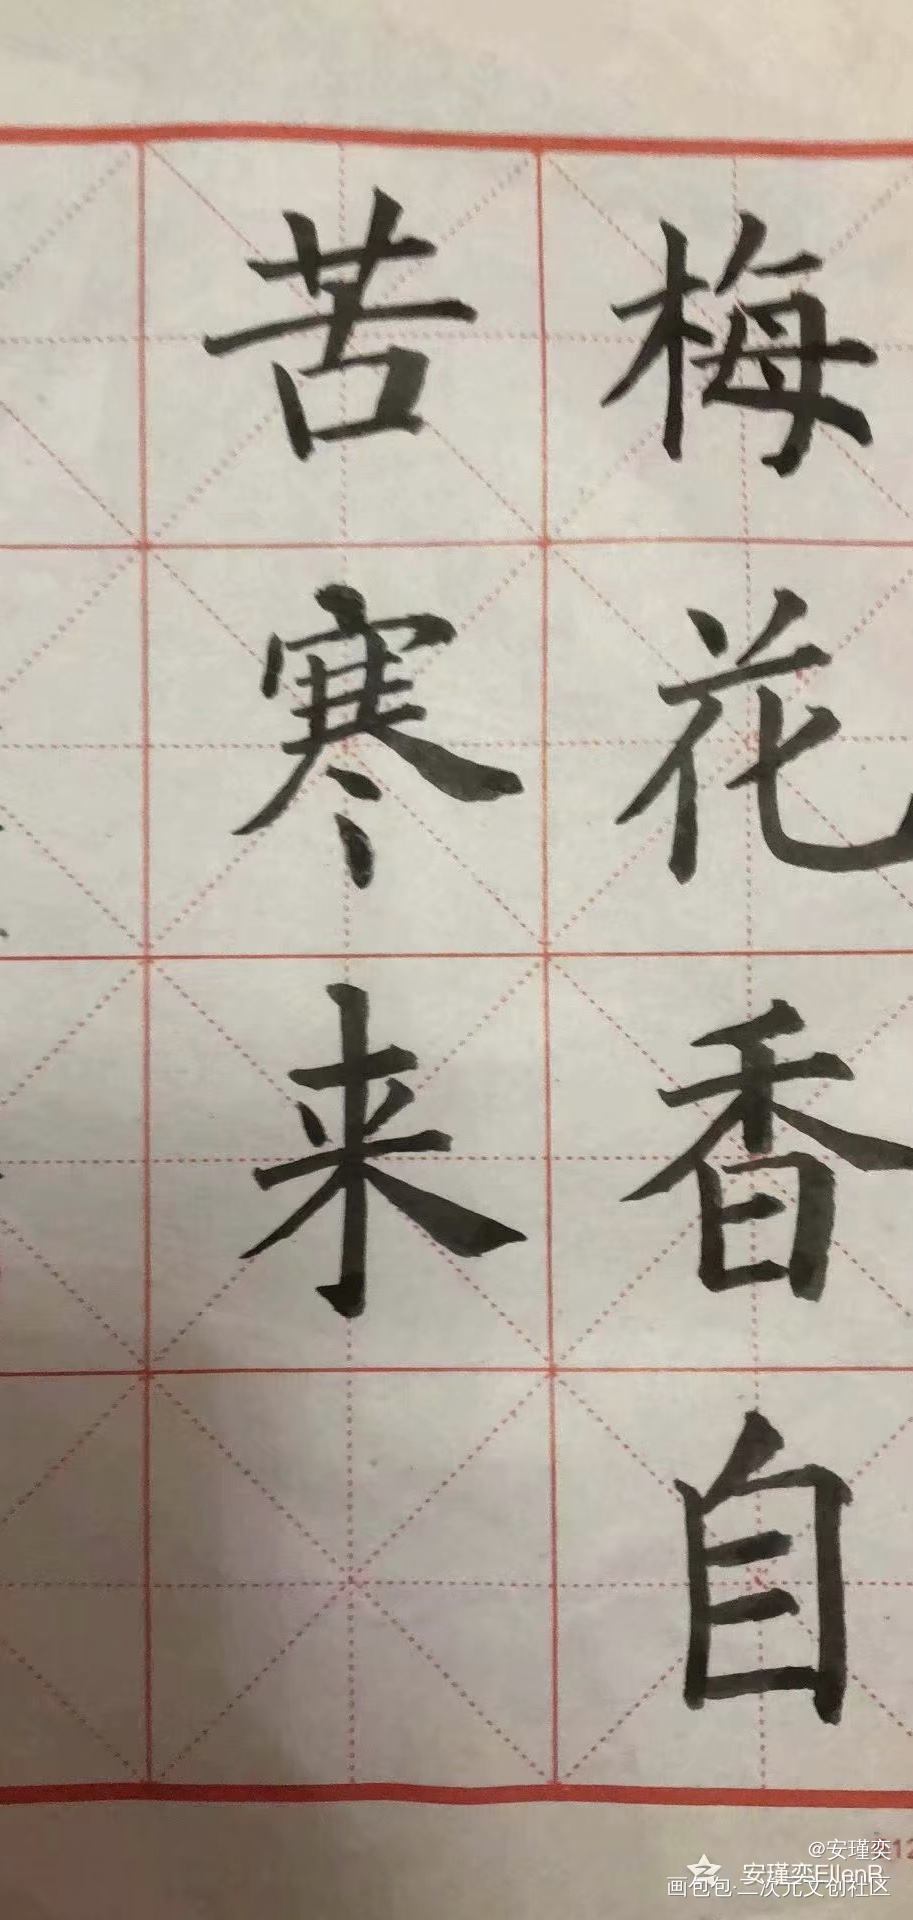 梅花香自
苦寒来
@安瑾奕
安瑾奕EllenR
画包包·二次元文创社区